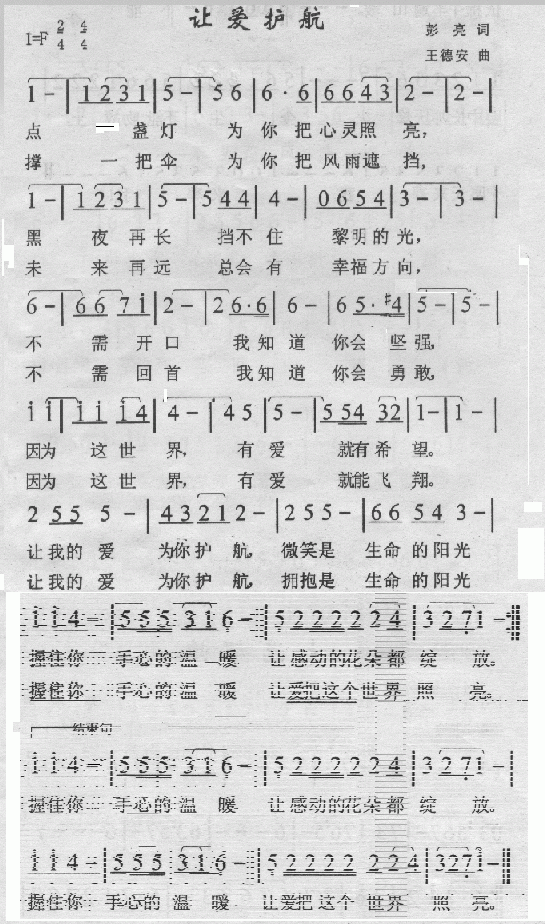 让爱护航
1=F 2/4 4/4
彭亮 词
王德安 曲
1 - | 1 2 3 1 | 5 - | 5 6 | 6 · 6 | 6 6 4 3 | 2 - | 2 - |
点 一 盏 灯 为 你 把 心 灵 照 亮,
撑 一 把 伞 为 你 把 风 雨 遮 挡,
1 - | 1 2 3 1 | 5 - | 5 4 4 | 4 - | 0 6 5 4 | 3 - | 3 - |
黑 夜 再 长 挡 不 住 黎 明 的 光,
未 来 再 远 总 会 有 幸 福 方 向,
6 - | 6 6 7 i | 2 - | 2 6 · 6 | 6 - | 6 5 · #4 | 5 - | 5 - |
不 需 开 口 我 知 道 你 会 坚 强,
不 需 回 首 我 知 道 你 会 勇 敢,
i i | i i i 4 | 4 - | 4 5 | 5 - | 5 5 4 3 2 | 1 - | 1 - |
因为 这 世 界, 有 爱 就有 希 望。
因为 这 世 界, 有 爱 就能 飞 翔。
2 5 5 5 - | 4 3 2 1 2 - | 2 5 5 - | 6 6 5 4 3 - |
让 我的 爱 为你 护 航, 微笑是 生命 的 阳光
让 我的 爱 为你 护 航, 拥抱是 生命 的 阳光
i i 4 - | 5 5 5 3 1 6 - | 5 2 2 2 2 2 2 4 | 3 2 7 1 - :‖
握住你 手心的 温 暖 让 感动的花朵都 绽 放。
握住你 手心的 温 暖 让爱把这个世界 照 亮。
结束句
i i 4 - | 5 5 5 3 1 6 - | 5 2 2 2 2 2 2 4 | 3 2 7 1 - |
握住你 手心的 温 暖 让 感动的花朵都 绽 放。
i i 4 - | 5 5 5 3 1 6 - | 5 2 2 2 2 2 2 4 | 3 2 7 1 - ‖
握住你 手心的 温 暖 让爱把 这个 世界 照 亮。